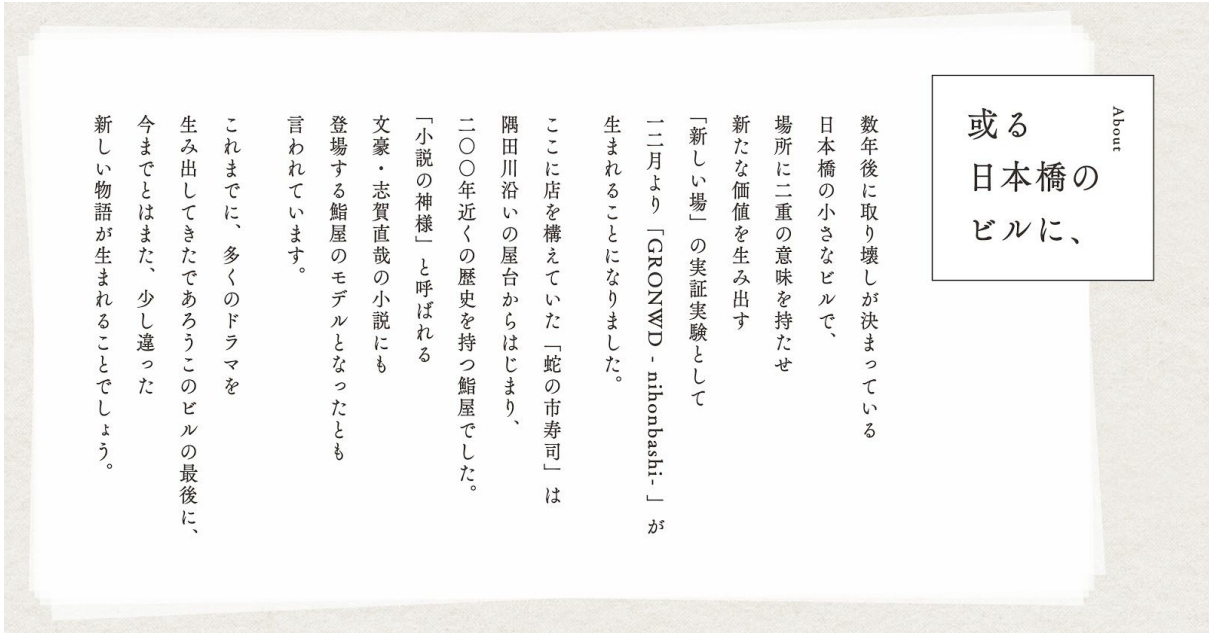 About
或る
日本橋の
ビルに、
数年後に取り壊しが決まっている
日本橋の小さなビルで、
場所に二重の意味を持たせ
新たな価値を生み出す
「新しい場」の実証実験として
一二月より「GRONWD - nihonbashi-」が
生まれることになりました。
ここに店を構えていた「蛇の市寿司」は
隅田川沿いの屋台からはじまり、
二〇〇年近くの歴史を持つ鮨屋でした。
「小説の神様」と呼ばれる
文豪・志賀直哉の小説にも
登場する鮨屋のモデルとなったとも
言われています。
これまでに、多くのドラマを
生み出してきたであろうこのビルの最後に、
今までとはまた、少し違った
新しい物語が生まれることでしょう。